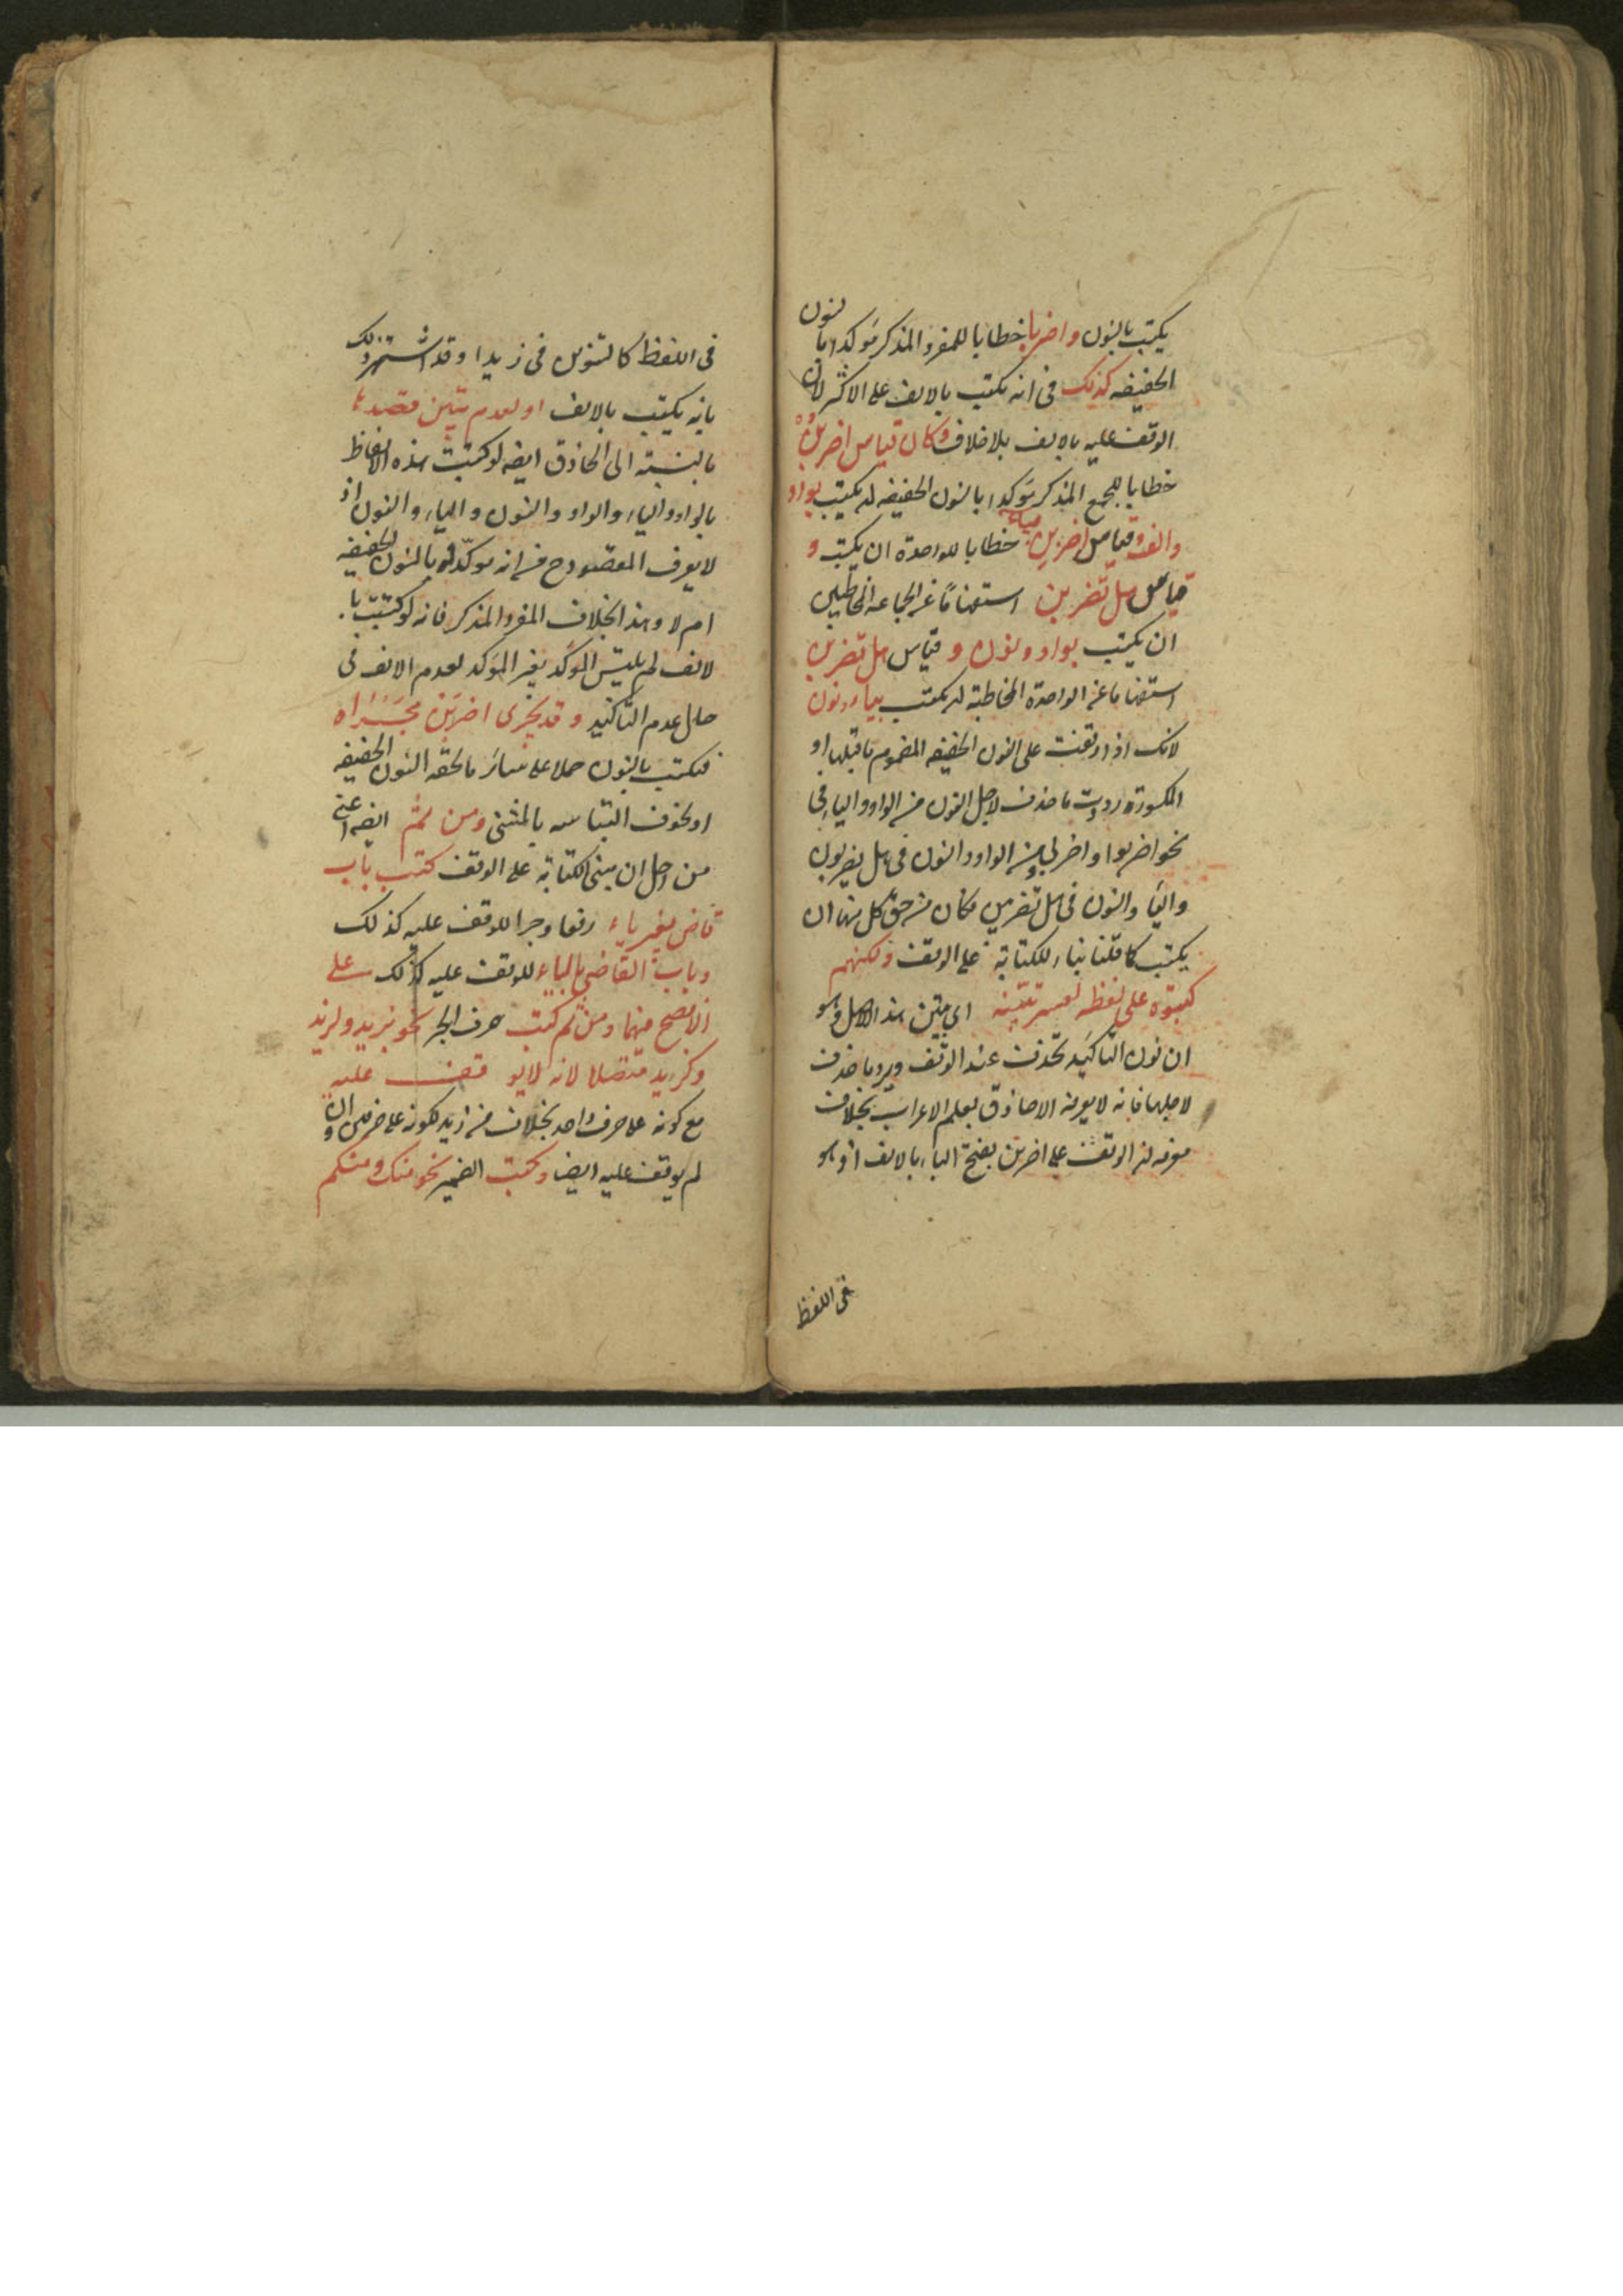 يكتب بالنون واضربا خطابا للمفرد المذكر مؤكدا بالنون
الخفيفه كذلك فى انه يكتب بالالف على الاكثر لان
الوقف عليه بالالف بلا خلاف وكان قياس اضربن
خطابا للجمع المذكر مؤكدا بالنون الخفيفه ان يكتب بواو
والف وقياس اضربن خطابا للواحدة ان يكتب و
قياس هل تضربن استفهاما عن الجماعه المخاطبين
ان يكتب بواو ونون و قياس هل تضربن
استفهاما عن الواحدة المخاطبة ان يكتب بياء ونون
لانك اذا وقفت على النون الخفيفه المضموم ماقبلها او
المكسورة رددت ماحذف لاجل النون من الواو والياء فى
نحو اضربوا واضربى ومن الواو والنون فى هل يضربون
والياء والنون فى هل تضربين فكان من حق كل منها ان
يكتب كما قلنا بناء للكتابة على الوقف ولكنهم
كتبوه على لفظه لعسر تبينه اى تبين هذا الاصل وهو
ان نون التاكيد تحذف عند الوقف ويرد ما حذف
لاجلها فانه لا يعرفه الا حاذق بعلم الاعراب بخلاف
معرفه ان الوقف على اضربن بفتح الباء بالالف اذ هو
فى اللفظ
فى اللفظ كالتنوين فى زيدا وقد اشتهر ذلك
بانه يكتب بالالف او لعدم تبين قصدها
بالنسبته الى الحاذق ايضه لو كتبت هذه الالفاظ
بالواو والياء والواو والنون والياء والنون اذ
لا يعرف المقصود ح من انه موكد بالنون الخفيفه
ام لا وهذا بخلاف المفرد المذكر فانه لو كتبت با
لالف لم يلتبس الموكد بغير الموكد لعدم الالف فى
حال عدم التاكيد و قد يجرى اضربن مجراه
فيكتب بالنون حملا على سائر مالحقه النون الخفيفه
او لخوف التباسه بالمثنى ومن ثم ايضه اعنى
من اجل ان مبنى الكتابة على الوقف كتب باب
قاض بغير ياء رفعا وجرا للوقف عليه كذلك
وباب القاضى بالياء للوقف عليه كذلك على
الافصح فيهما ومن ثم كتب حرف الجر نحو بزيد ولزيد
وكزيد متصلا لانه لايو قف عليه
مع كونه على حرف واحد بخلاف من زيد لكونه على حرفين وان
لم يوقف عليه ايضا وكتب الضمير نحو منك ومنكم